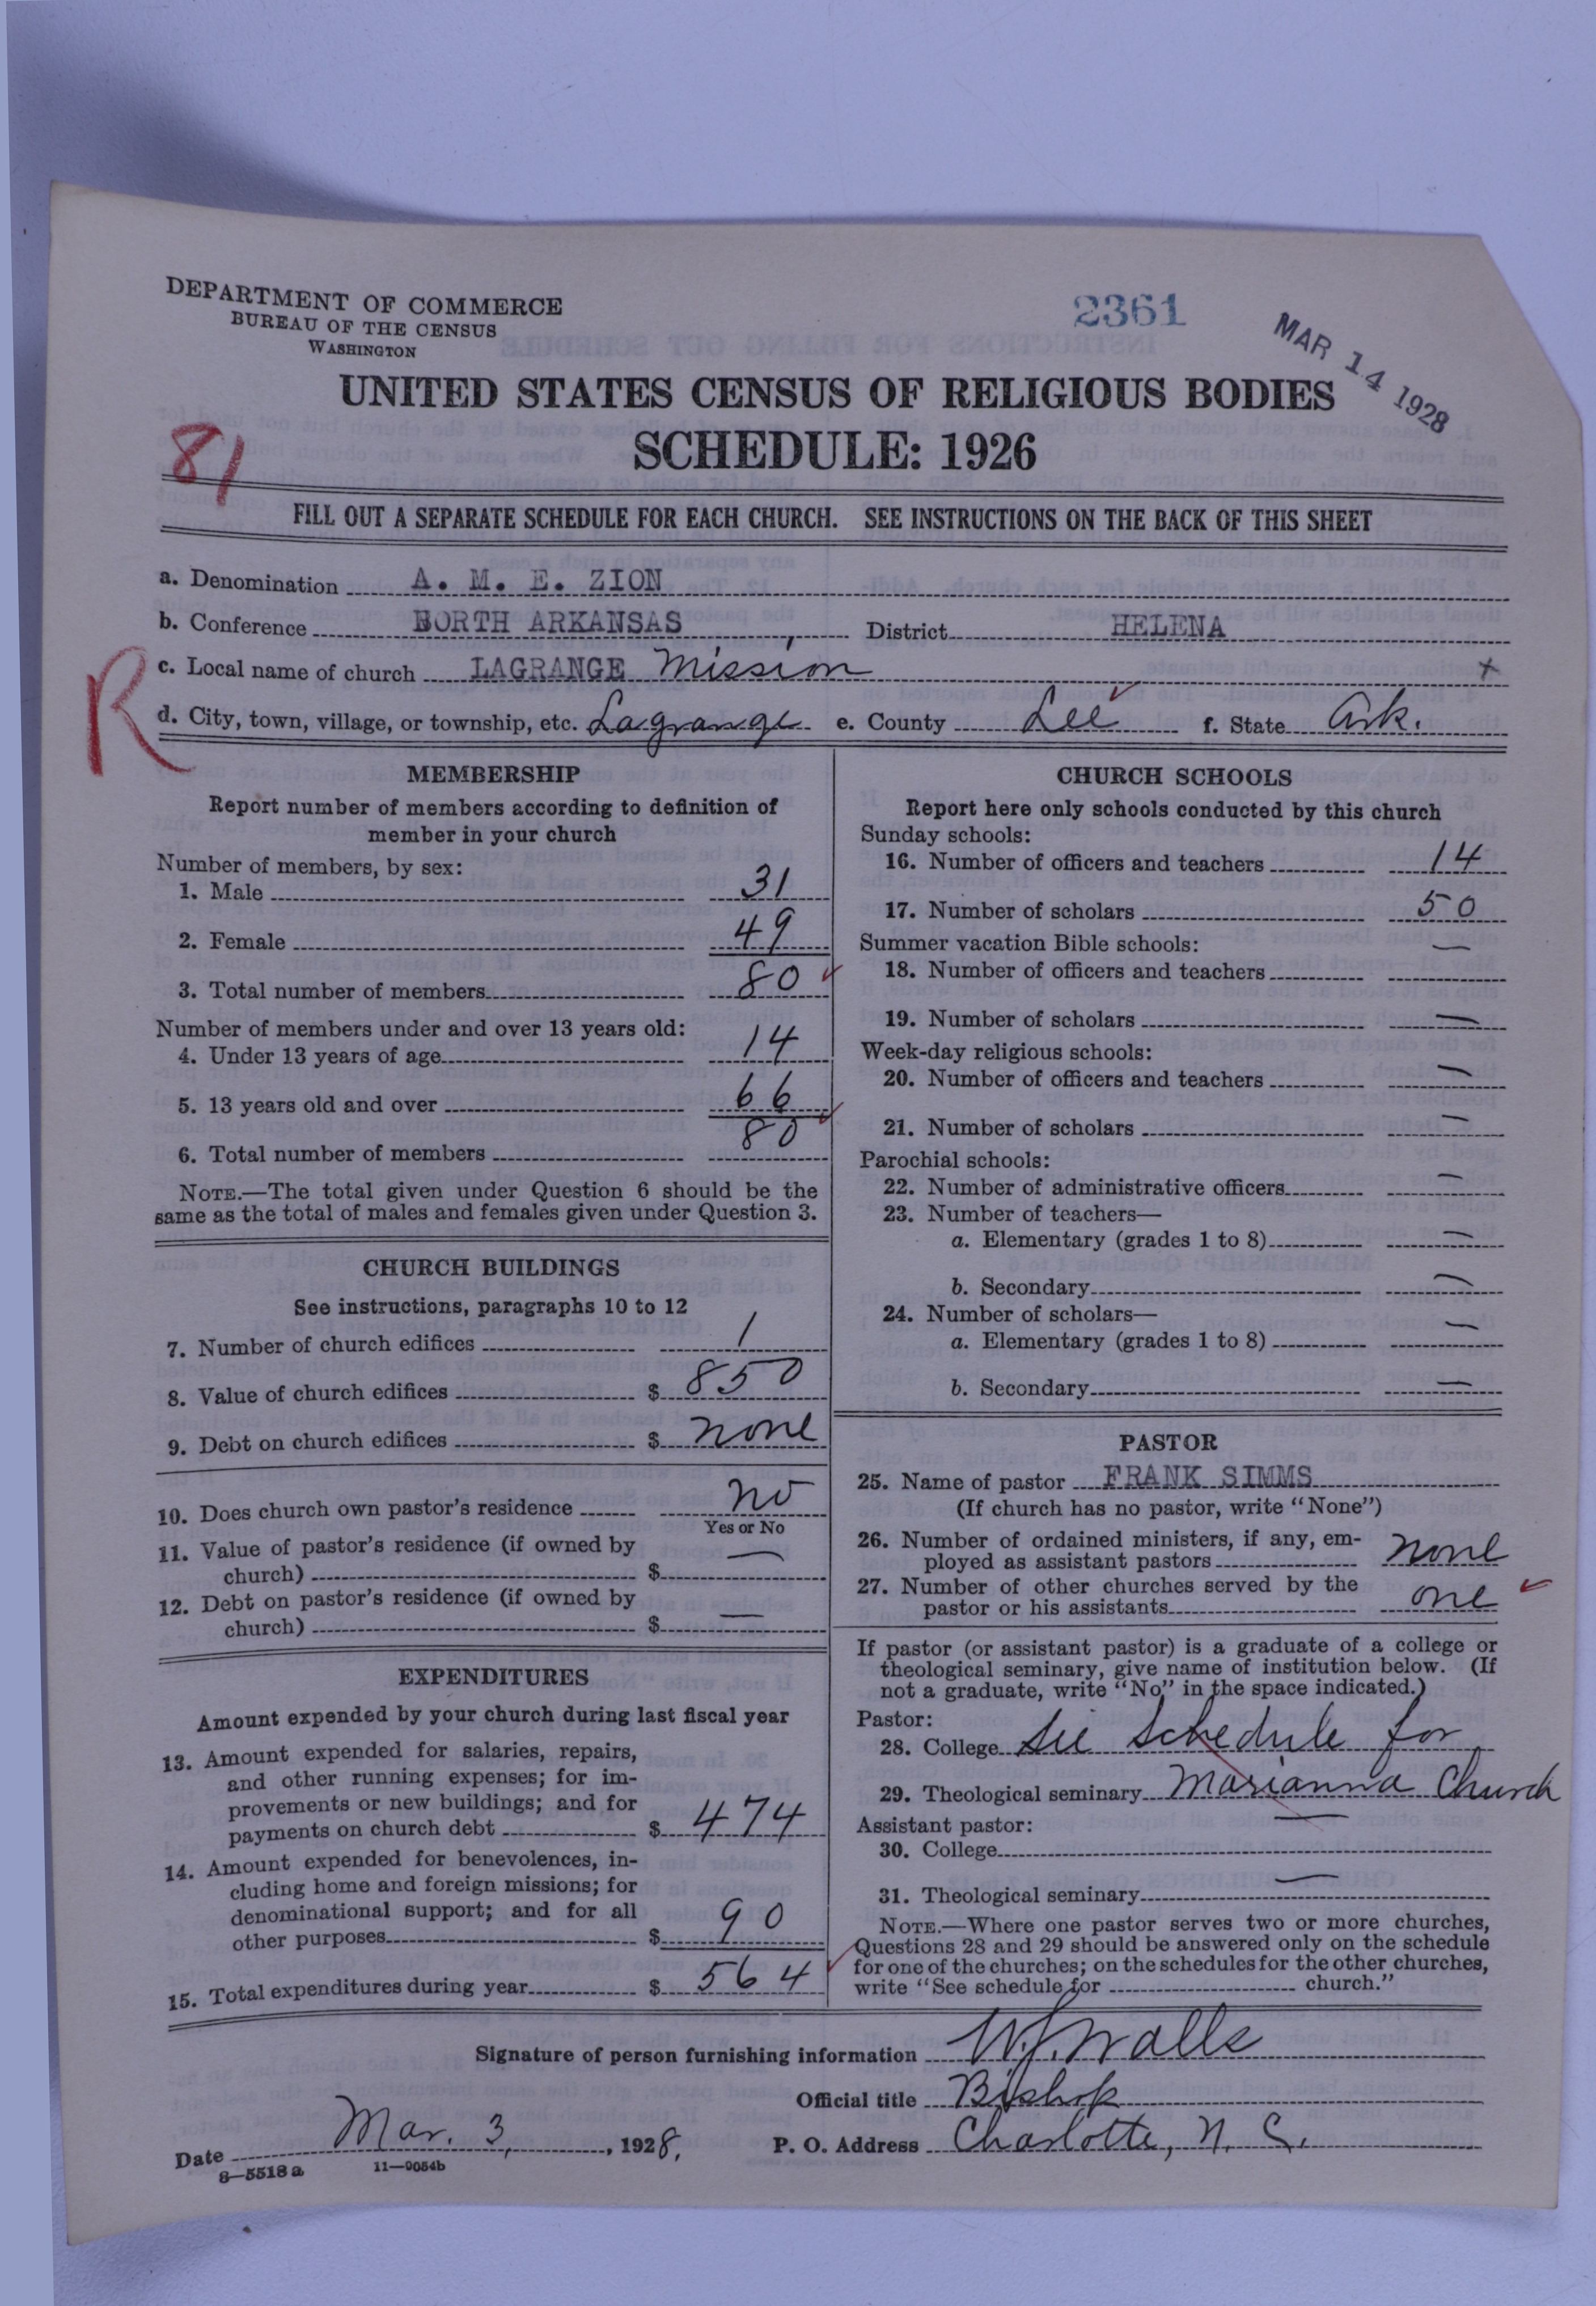 DEPARTMENT OF COMMERCE
BUREAU OF THE CENSUS
WASHINGTON
2361
MAR 14 1928
UNITED STATES CENSUS OF RELIGIOUS BODIES
SCHEDULE: 1926
81
FILL OUT A SEPARATE SCHEDULE FOR EACH CHURCH. SEE INSTRUCTIONS ON THE BACK OF THIS SHEET
a. Denomination A. M. E. ZION
b. Conference NORTH ARKANSAS District HELENA
R
c. Local name of church LAGRANGE Mission +
d. City, town, village, or township, etc. Lagrange e. County Lee f. State Ark.
MEMBERSHIP
Report number of members according to definition of
member in your church
Number of members, by sex:
1. Male 31
2. Female 49
3. Total number of members 80
Number of members under and over 13 years old:
4. Under 13 years of age 14
5. 13 years old and over 66
6. Total number of members 80
NOTE.—The total given under Question 6 should be the
same as the total of males and females given under Question 3.
CHURCH BUILDINGS
See instructions, paragraphs 10 to 12
7. Number of church edifices 1
8. Value of church edifices $ 850
9. Debt on church edifices $ none
10. Does church own pastor's residence no
Yes or No
11. Value of pastor's residence (if owned by
church) $ —
12. Debt on pastor's residence (if owned by
church) $ —
EXPENDITURES
Amount expended by your church during last fiscal year
13. Amount expended for salaries, repairs,
and other running expenses; for im-
provements or new buildings; and for
payments on church debt $ 474
14. Amount expended for benevolences, in-
cluding home and foreign missions; for
denominational support; and for all
other purposes $ 90
15. Total expenditures during year $ 564
CHURCH SCHOOLS
Report here only schools conducted by this church
Sunday schools:
16. Number of officers and teachers 14
17. Number of scholars 50
Summer vacation Bible schools:
18. Number of officers and teachers —
19. Number of scholars —
Week-day religious schools:
20. Number of officers and teachers —
21. Number of scholars —
Parochial schools:
22. Number of administrative officers —
23. Number of teachers—
a. Elementary (grades 1 to 8) —
b. Secondary —
24. Number of scholars—
a. Elementary (grades 1 to 8) —
b. Secondary —
PASTOR
25. Name of pastor FRANK SIMMS
(If church has no pastor, write "None")
26. Number of ordained ministers, if any, em-
ployed as assistant pastors none
27. Number of other churches served by the
pastor or his assistants one
If pastor (or assistant pastor) is a graduate of a college or
theological seminary, give name of institution below. (If
not a graduate, write "No" in the space indicated.)
Pastor:
28. College See schedule for
29. Theological seminary Marianna Church
Assistant pastor:
30. College —
31. Theological seminary —
NOTE.—Where one pastor serves two or more churches,
Questions 28 and 29 should be answered only on the schedule
for one of the churches; on the schedules for the other churches,
write "See schedule for church."
Signature of person furnishing information W.J. Walls
Official title Bishop
Date Mar. 3, 1928. P. O. Address Charlotte, N. C.
8—5518a 11—9054b